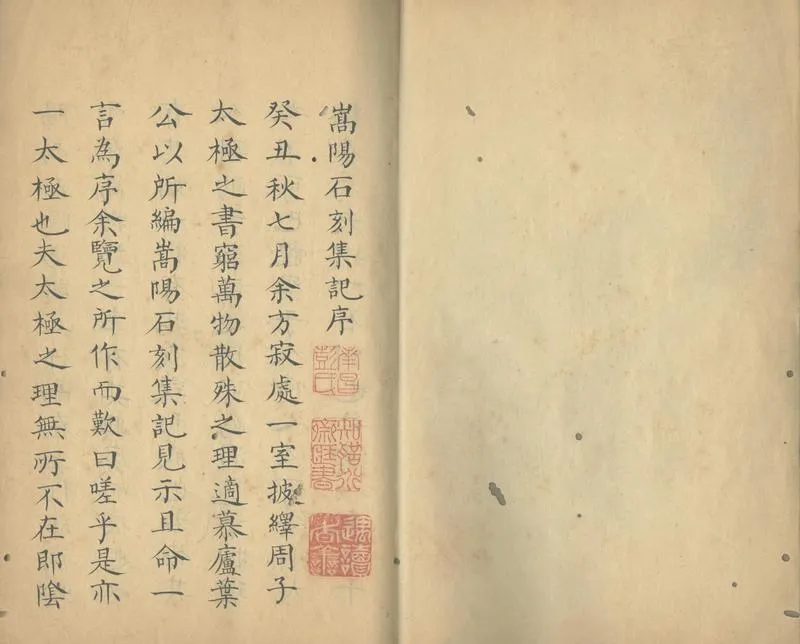 嵩陽石刻集記序
癸丑秋七月余方寂處一室披繹周子
太極之書窮萬物散殊之理適慕廬葉
公以所編嵩陽石刻集記見示且命一
言為序余覽之所作而歎曰嗟乎是亦
一太極也夫太極之理無所不在即陰
南昌彭氏
知聖道齋藏書
遇讀者善